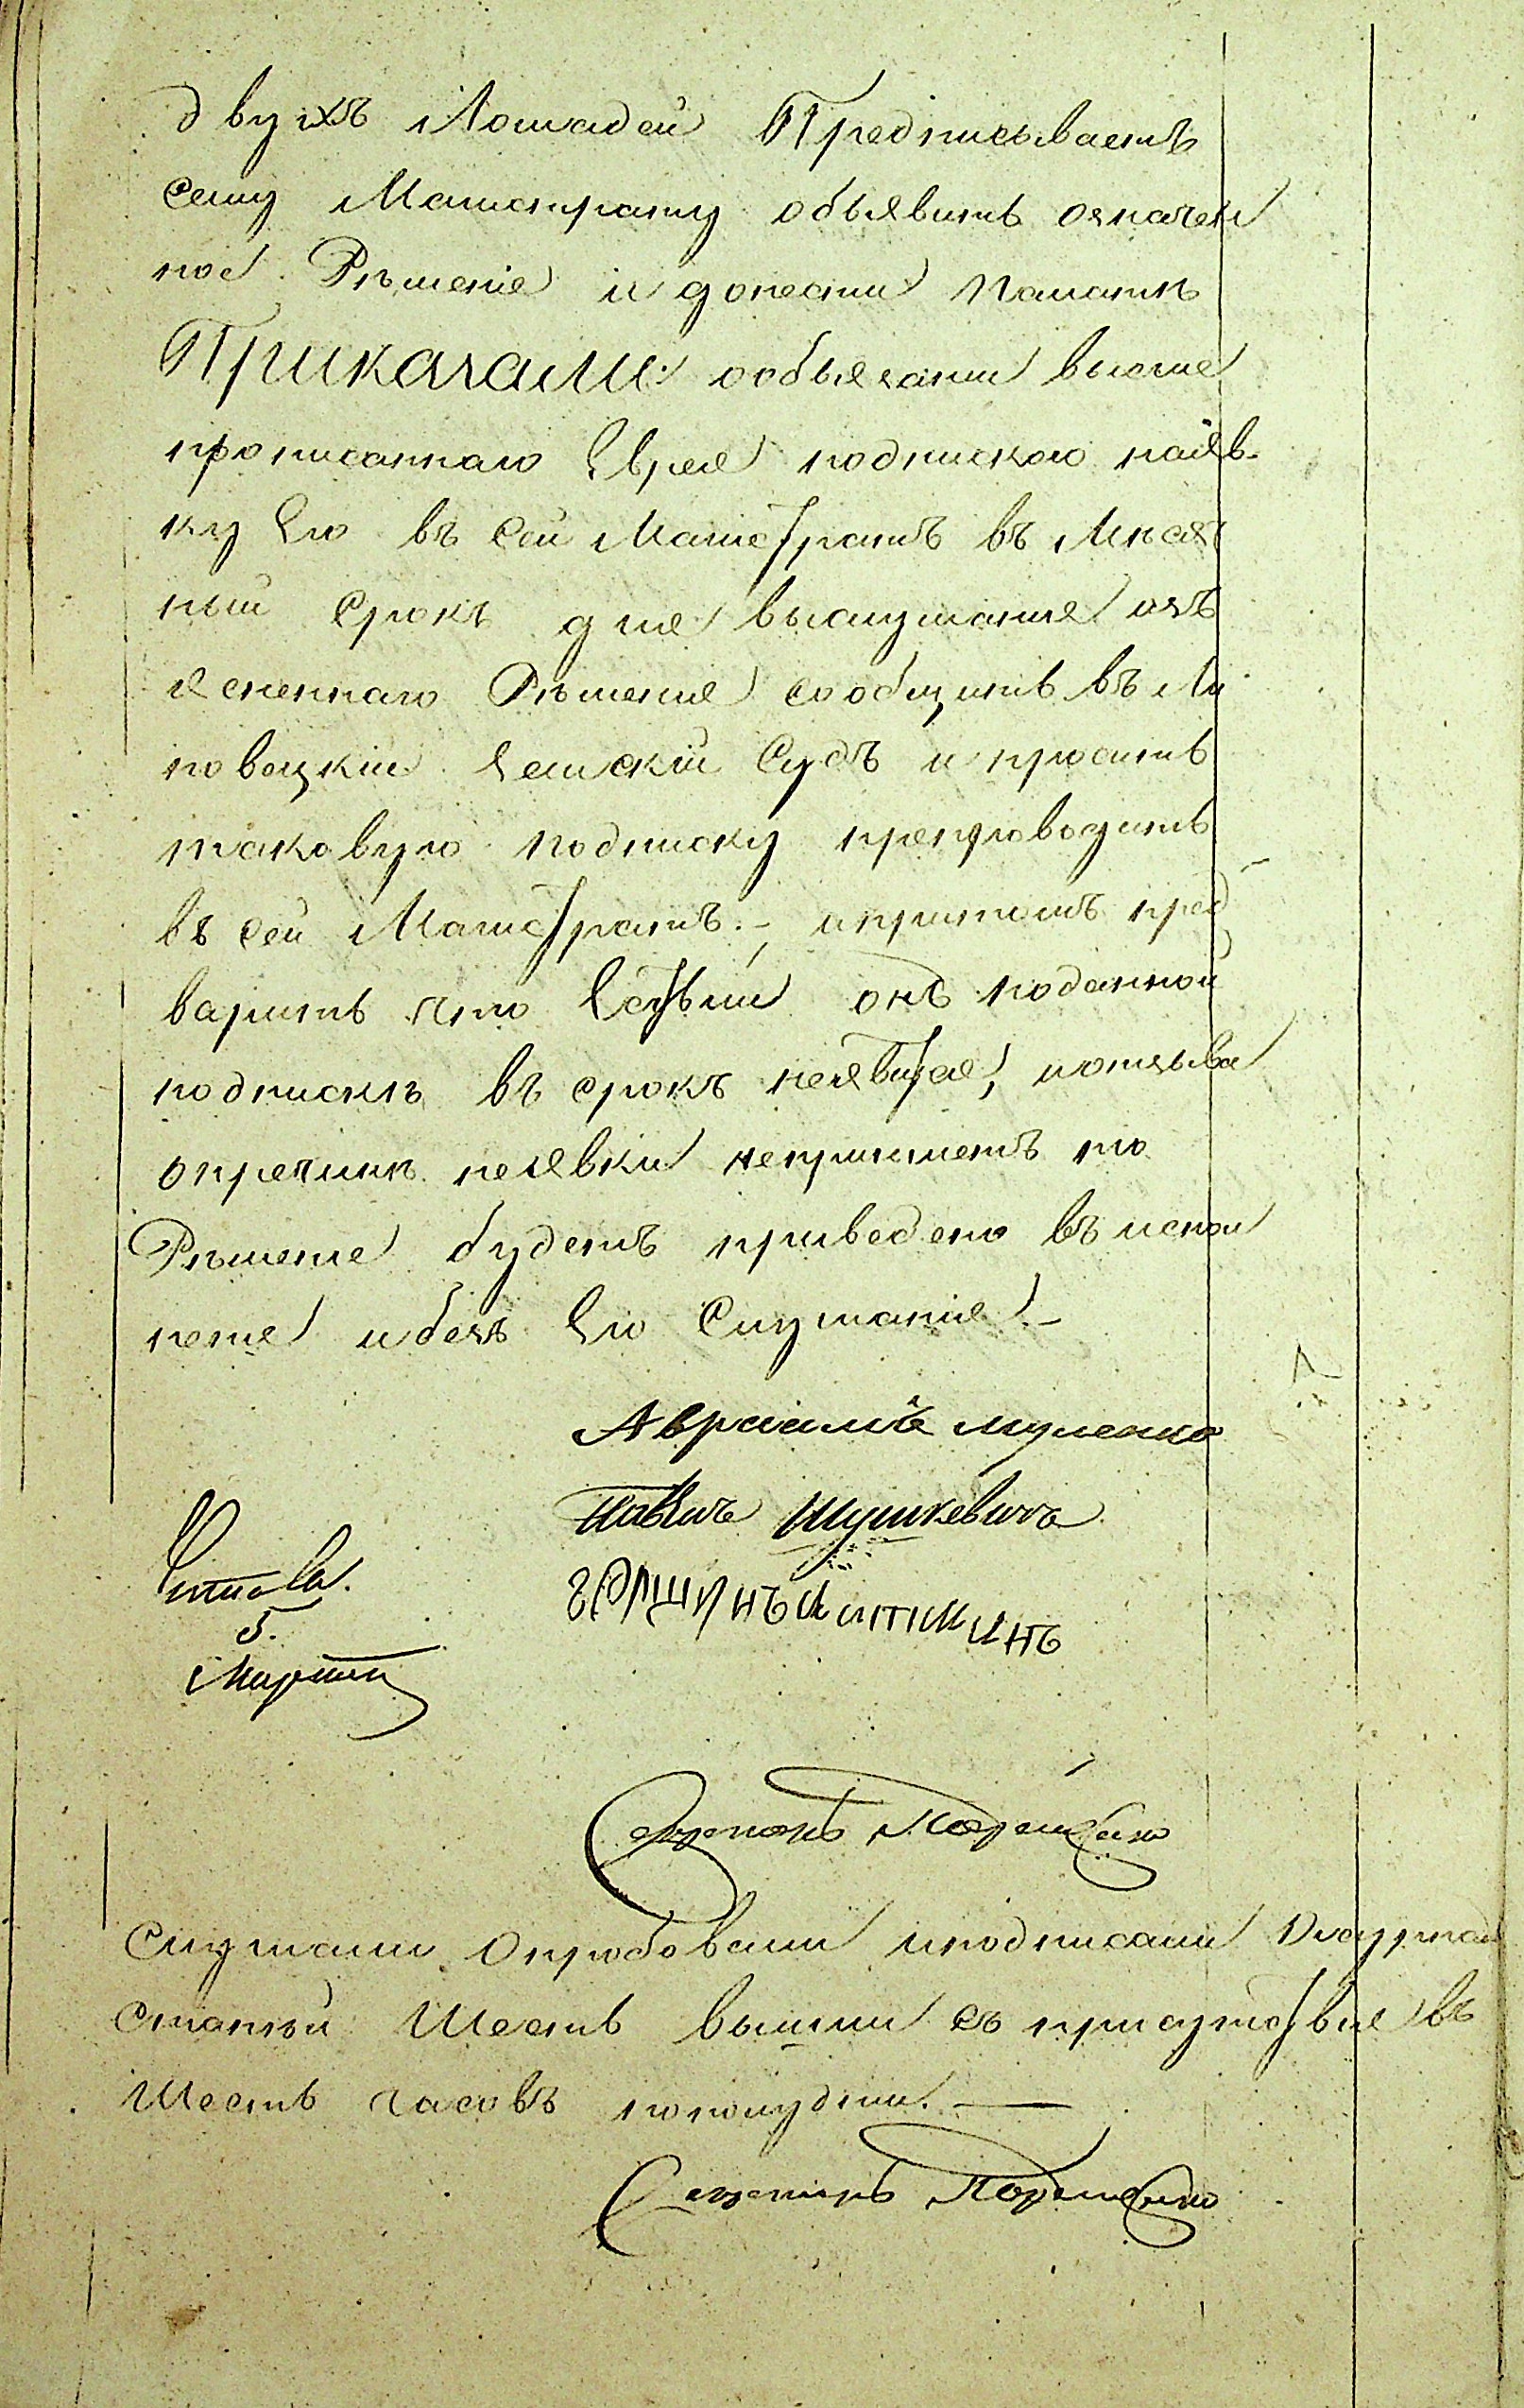 двухъ Лошадей Предписываетъ
сему Магистрату объявить означен
ное Рѣшеніе и донести Палатѣ
Приказали: о обязаніи выше
прописаннаго Еврея подпискою наявъ-
ку Его въ сей Магистратъ въ Мѣсяч
ный срокъ для выслушанія изъ
ясненнаго Рѣшенія сообщить въ Ли
повецкій Земскій Судъ и просить
таковую подписку препроводить
въ сей Магистратъ.-, и притомъ пред
варить что Естьли онъ по данной
подпискѣ въ срокъ неявится, и отзыва
о причинѣ неявки непришлетъ то
Рѣшеніе будетъ приведено въ испол
неніе и безъ Его Слушанія.-
Авраамъ
Павелъ Шушкевичъ
Читалъ
5.
Марта
Секретарь
Слушали Опробовали и подписали Журнал
Статьи Шесть вышли съ присутствія въ
Шесть часовъ пополудни. —
Секретарь